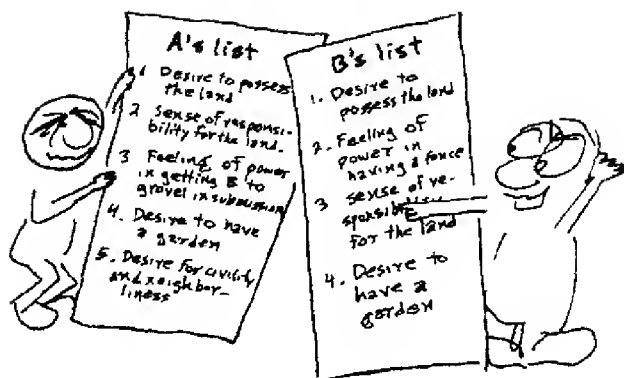 A's list
1 Desire to possess
the land
2 Sense of responsi-
bility for the land.
3 Feeling of power
in getting B to
grovel in submission
4. Desire to have
a garden
5. Desire for civility
and neighbor-
liness
B's list
1. Desire to
possess the land
2. Feeling of
power in
having a fence
3 sense of re-
for the land
4. Desire to
have a
garden